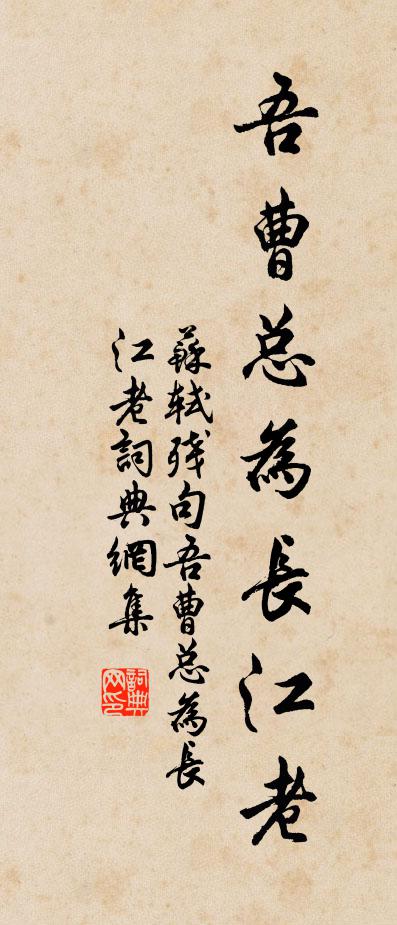 吾曹总為長江老
蘇軾残句吾曹总為長
江老詞典網集
詞典
网印